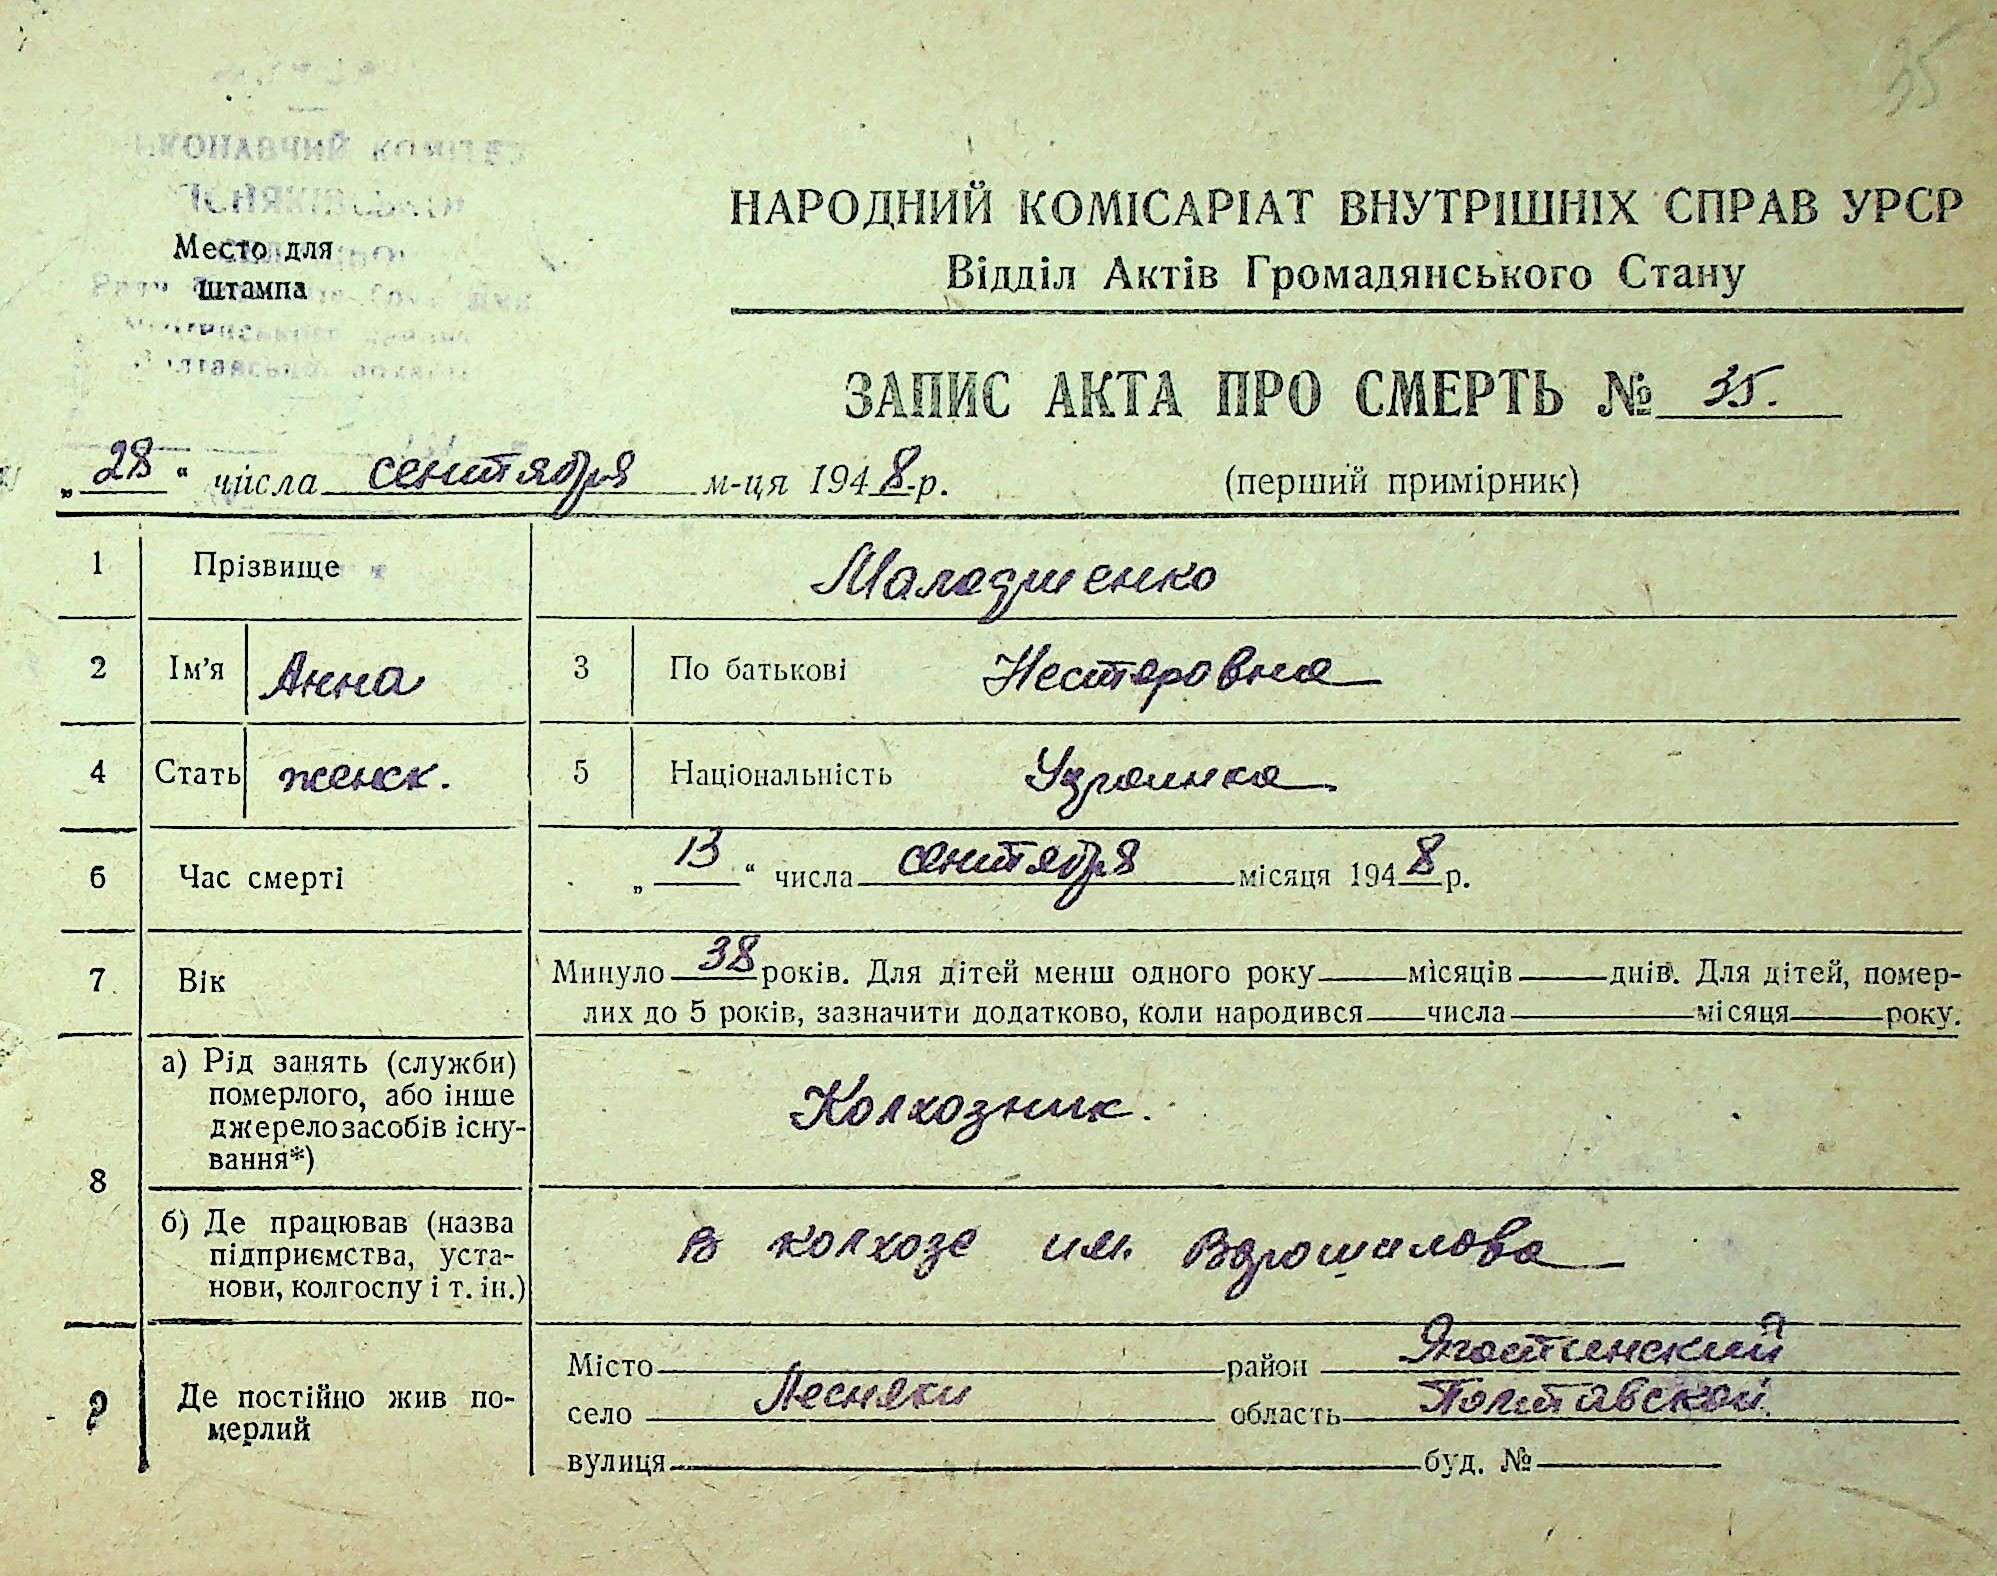 35
КОНАВЧИЙ КОМІТЕТ
Место для
штампа
НАРОДНИЙ КОМІСАРІАТ ВНУТРІШНІХ СПРАВ УРСР
Відділ Актів Громадянського Стану
ЗАПИС АКТА ПРО СМЕРТЬ № 35.
„28“ числа сентября м-ця 1948 р. (перший примірник)
1 Прізвище Маладшенко
2 Ім'я Анна 3 По батькові Нестеровна
4 Стать женск. 5 Національність Украинка
6 Час смерті „13“ числа сентября місяця 1948 р.
7 Вік Минуло 38 років. Для дітей менш одного року місяців днів. Для дітей, помер-
лих до 5 років, зазначити додатково, коли народився числа місяця року.
8 а) Рід занять (служби)
померлого, або інше
джерело засобів існу-
вання*)
Колхозник.
б) Де працював (назва
підприємства, уста-
нови, колгоспу і т. ін.)
в колхозе им. Ворошилова
9 Де постійно жив по-
мерлий
Місто район Яготинский
село Лесняки область Полтавской
вулиця буд. №